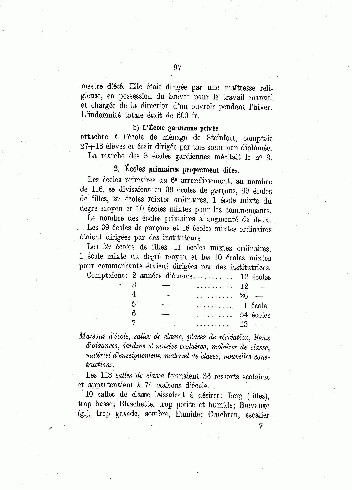 97
mestre d'été. Elle était dirigée par une maîtresse reli-
gieuse, en possession du brevet pour le travail manuel
et chargée de la direction d'un ouvroir pendant l'hiver.
L'indemnité totale était de 600 fr.
b) L'École gardienne privée
attachée à l'école de ménage de Steinfort, comptait
27+18 élèves et était dirigée par une sœur non diplômée.
La marche des 3 écoles gardiennes méritait le n° 3.
3. Écoles primaires proprement dites.
Les écoles primaires du 6e arrondissement, au nombre
de 116, se divisaient en 39 écoles de garçons, 39 écoles
de filles, écoles mixtes ordinaires, 1 école mixte du
degré moyen et 10 écoles mixtes pour les commençants.
Le nombre des écoles primaires a augmenté de deux.
Les 39 écoles de garçons et 16 écoles mixtes ordinaires
étaient dirigées par des instituteurs.
Les écoles de filles, 11 écoles mixtes ordinaires,
1 école mixte du degré moyen et les 10 écoles mixtes
pour commençants étaient dirigées par des institutrices.
Comptaient: 2 années d'études 12 écoles
3 — 12 —
4 — —
5 — 1 école
6 — écoles
7 —
Maisons d'école, salles de classe, places de récréation, lieux
d'aisances, jardins et musées scolaires, mobilier de classe,
matériel d'enseignement, matériel de classe, nouvelles cons-
tructions.
Les salles de classe formaient ressorts scolaires
et appartenaient à maisons d'école.
10 salles de classe laissaient à désirer: Berg (filles),
trop basse; Blaschette, trop petite et humide; Buevange
(g.), trop grande, sombre, humide; Cruchten, escalier
7